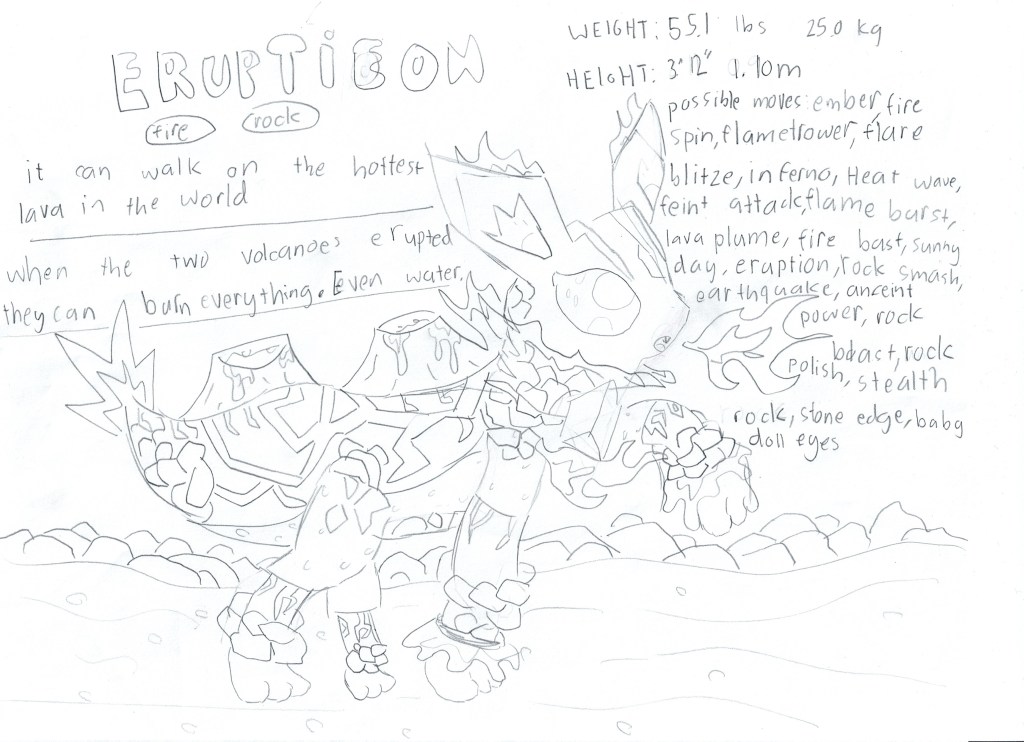 ERUPTiEON
fire
rock
it can walk on the hottest
lava in the world
when the two volcanoes erupted
they can burn everything. Even water.
WEIGHT: 55.1 lbs 25.0 kg
HEIGHT: 3"12" 1.10m
possible moves: ember, fire
spin, flametrower, flare
blitze, inferno, Heat wave,
feint attack, flame burst,
lava plume, fire bast, sunny
day, eruption, rock smash,
earthquake, anceint
power, rock
bdast, rock
polish, stealth
rock, stone edge, baby
doll eyes